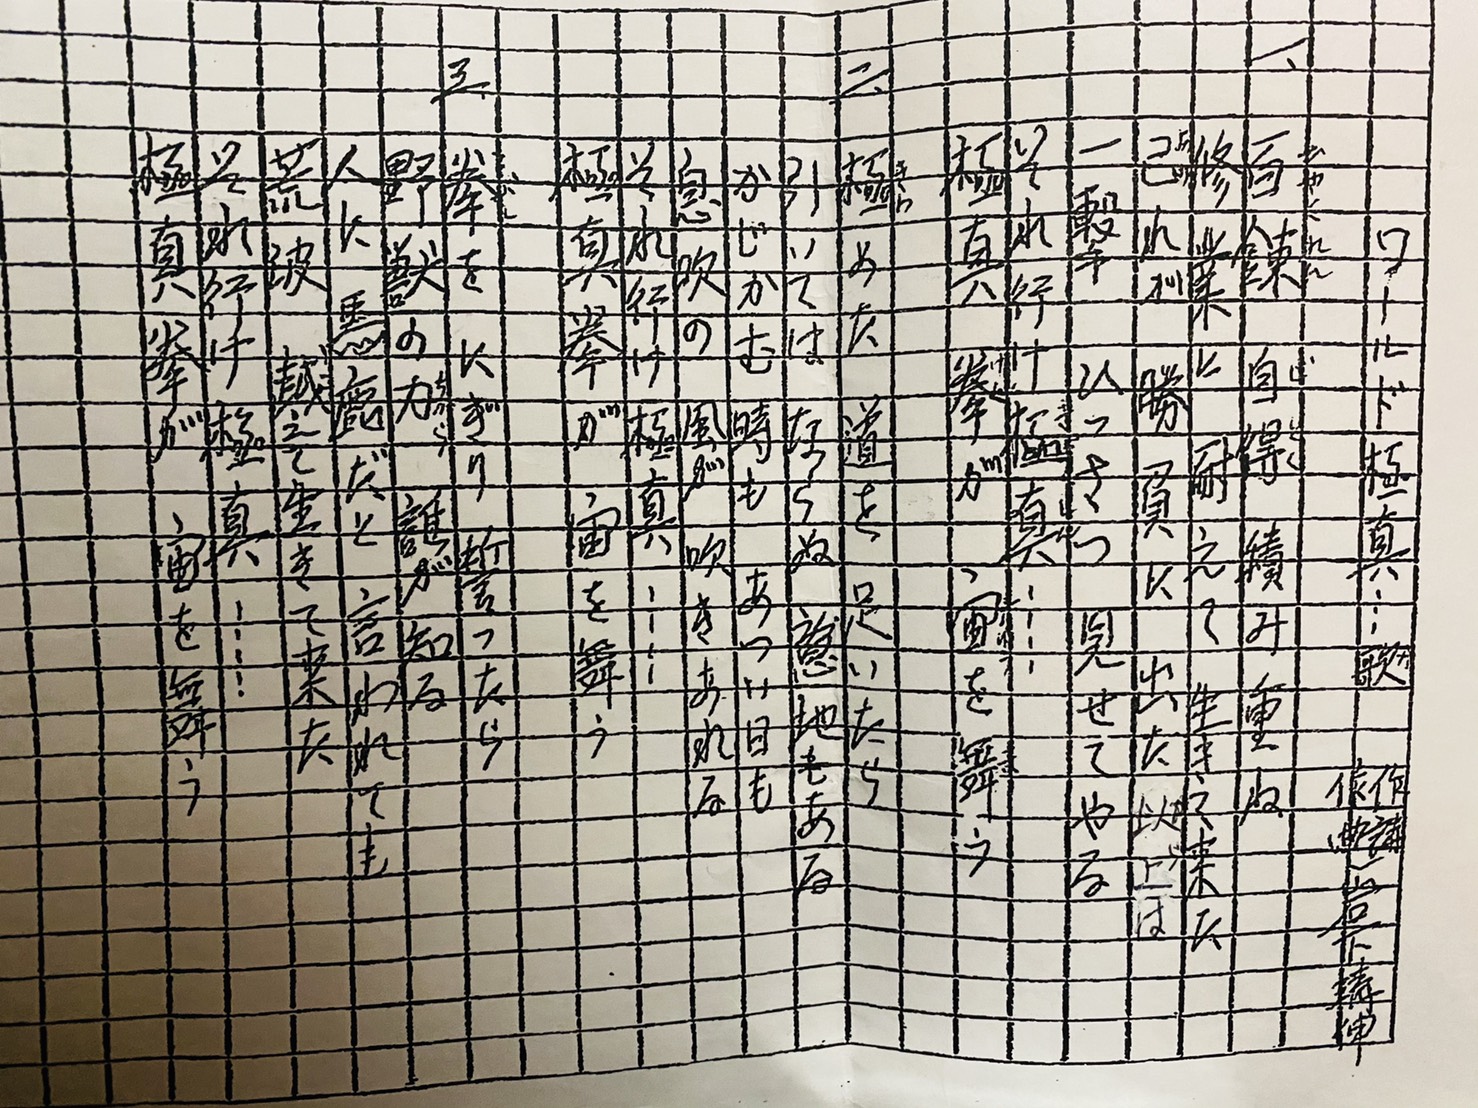 ワールド極真…歌
作詞
作曲 岩下
一、
百錬自得 積み重ね
修業に耐えて 生きて来た
己れが勝負に出た以上は
一撃ひっさつ 見せてやる
それ行け極真…………
極真拳が 宙を舞う
二、
極めた道を 足いたら
引いてはならぬ 意地もある
かじかむ時も あつい日も
息吹の風が 吹きあれる
それ行け極真…………
極真拳が 宙を舞う
三、
拳を にぎり誓ったら
野獣の力 誰が知る
人に馬鹿だと 言われても
荒波越えて生きて来た
それ行け極真…………
極真拳が 宙を舞う